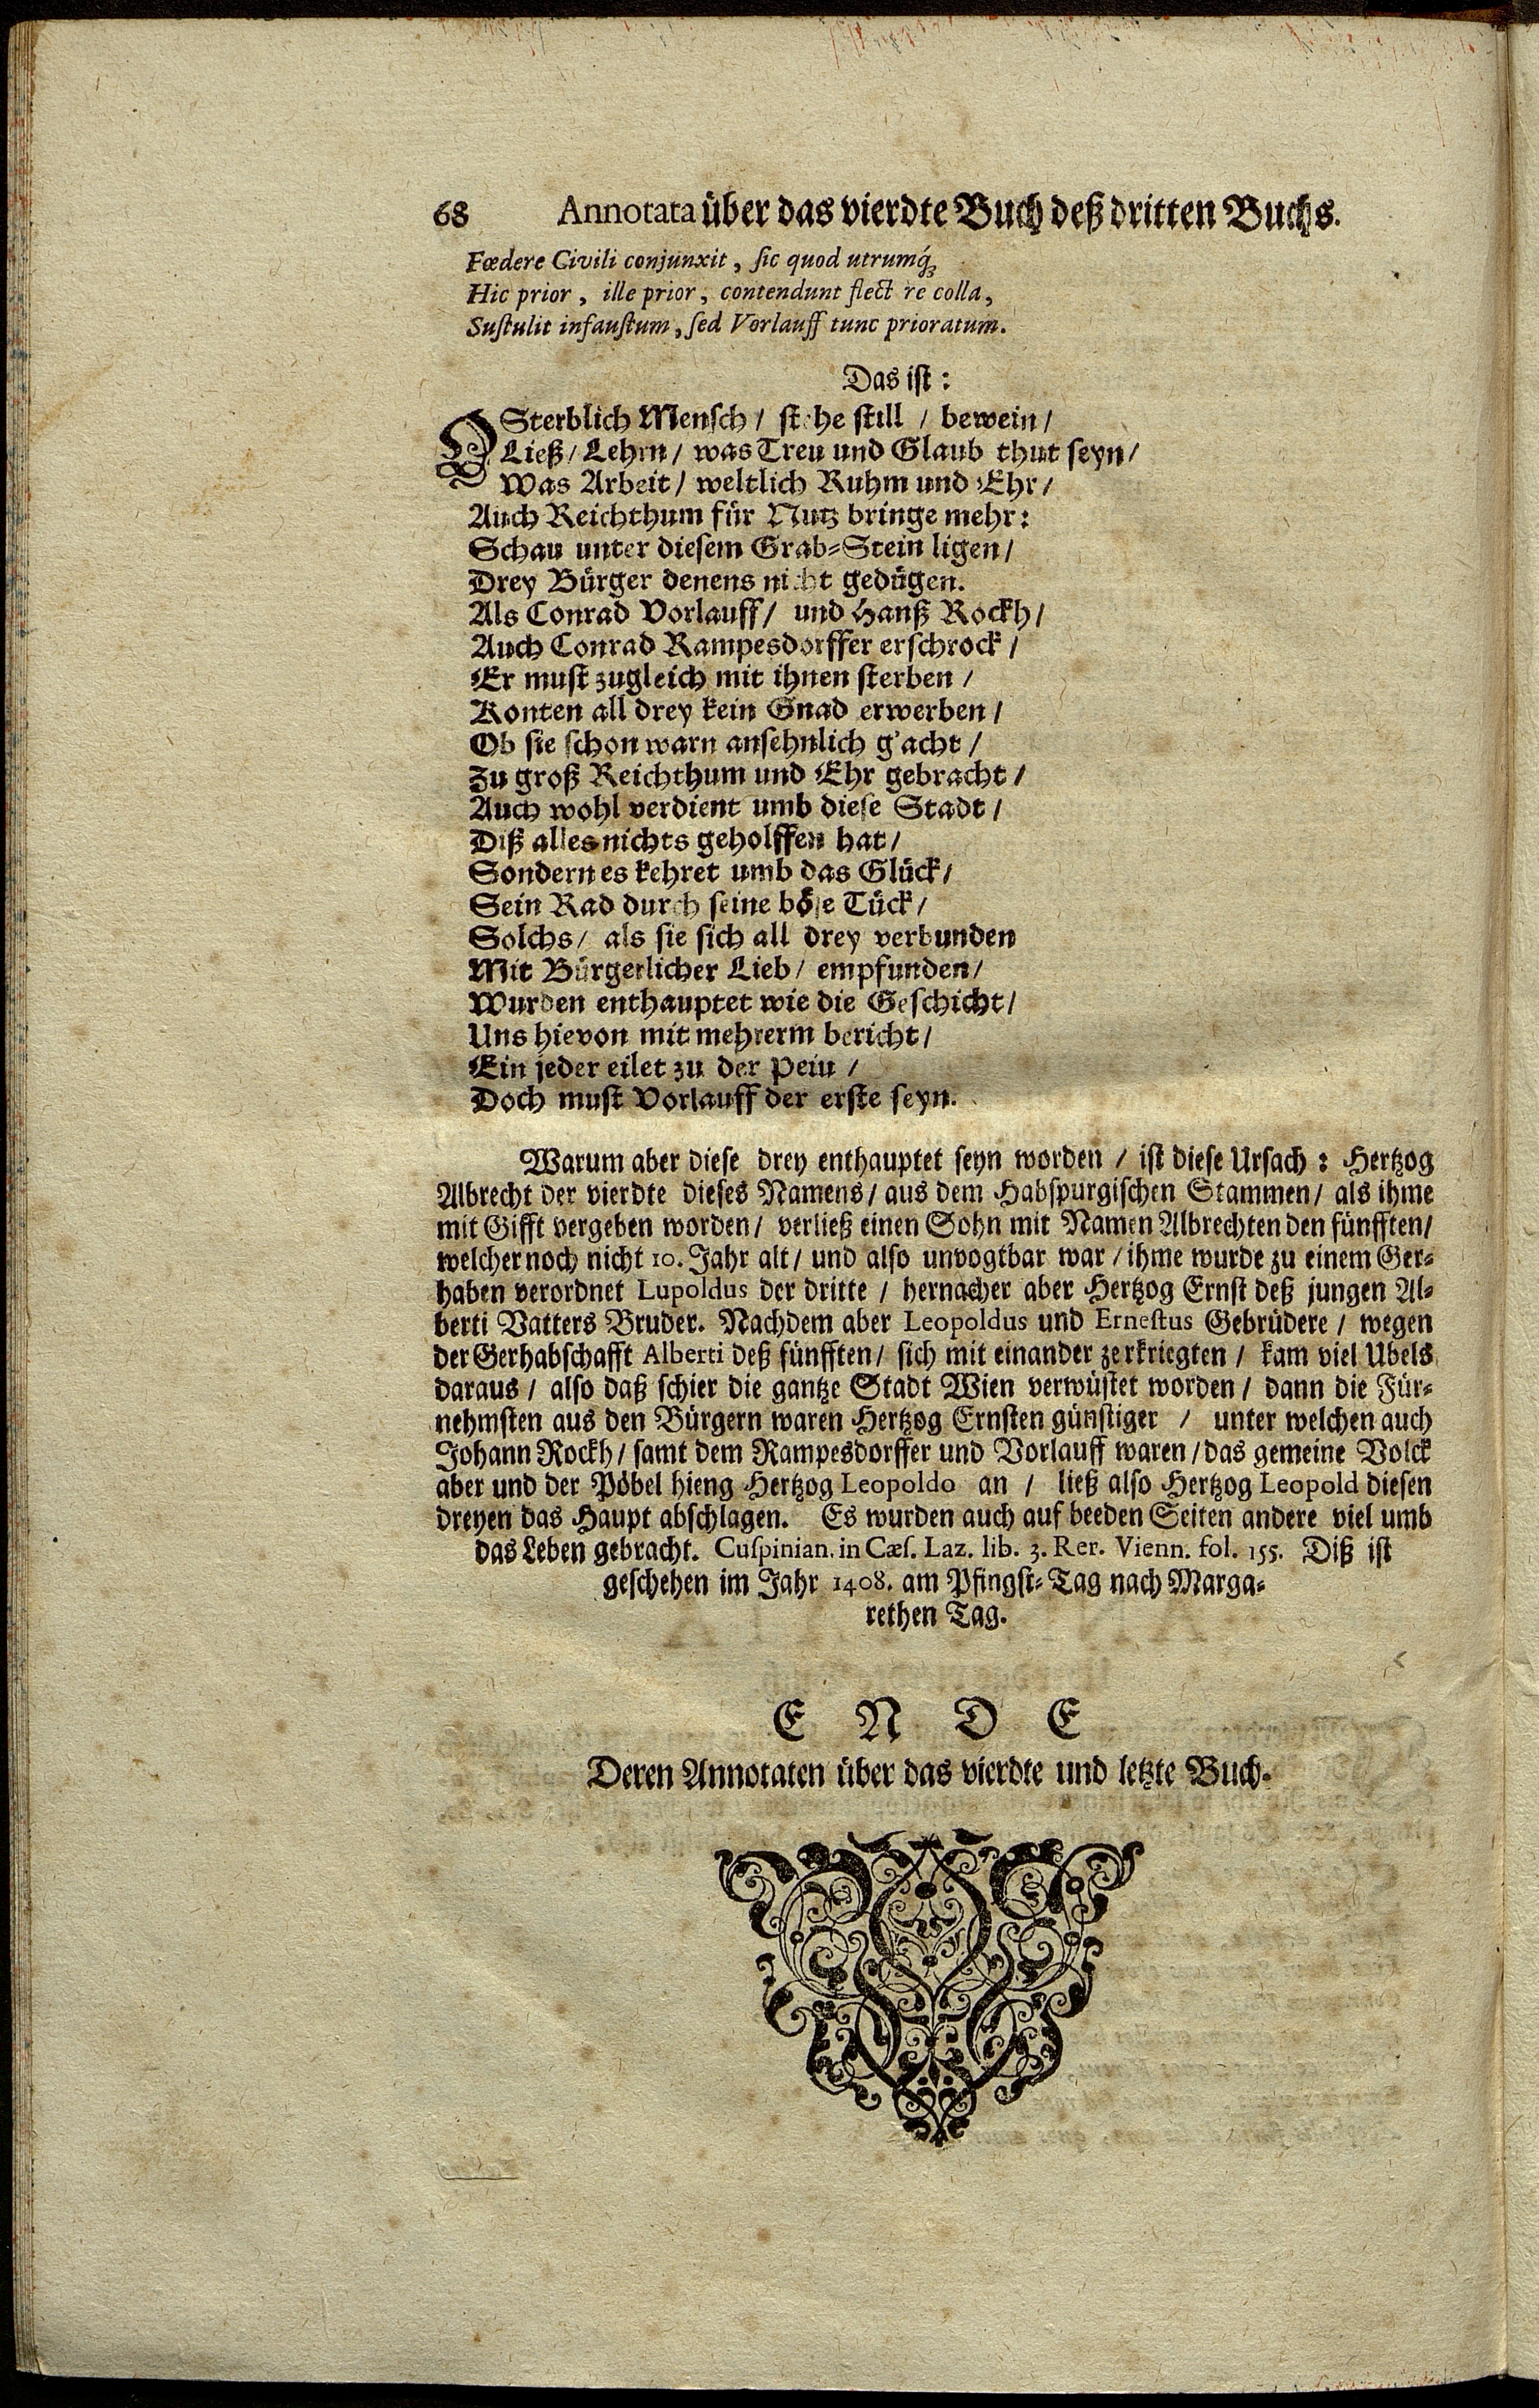 68 Annotata über das vierdte Buch deß dritten Buchs.
Fœdere Civili conjunxit, sic quod utrumq́;
Hic prior, ille prior, contendunt flect re colla,
Sustulit infaustum, sed Vorlauff tunc prioratum.
Das ist:
O Sterblich Mensch / stehe still / bewein /
Ließ / Lehrn / was Treu und Glaub thut seyn /
Was Arbeit / weltlich Ruhm und Ehr /
Auch Reichthum für Nutz bringe mehr:
Schau unter diesem Grab-Stein ligen /
Drey Bürger denens nicht gedügen.
Als Conrad Vorlauff / und Hanß Rockh /
Auch Conrad Rampesdorffer erschrock /
Er must zugleich mit ihnen sterben /
Konten all drey kein Gnad erwerben /
Ob sie schon warn ansehnlich g'acht /
Zu groß Reichthum und Ehr gebracht /
Auch wohl verdient umb diese Stadt /
Diß alles nichts geholffen hat /
Sondern es kehret umb das Glück /
Sein Rad durch seine böse Tück /
Solchs / als sie sich all drey verbunden
Mit Bürgerlicher Lieb / empfunden /
Wurden enthauptet wie die Geschicht /
Uns hievon mit mehrerm bericht /
Ein jeder eilet zu der Pein /
Doch must Vorlauff der erste seyn.
Warum aber diese drey enthauptet seyn worden / ist diese Ursach: Hertzog
Albrecht der vierdte dieses Namens / aus dem Habspurgischen Stammen / als ihme
mit Gifft vergeben worden / verließ einen Sohn mit Namen Albrechten den fünfften /
welcher noch nicht 10. Jahr alt / und also unvogtbar war / ihme wurde zu einem Ger-
haben verordnet Lupoldus der dritte / hernacher aber Hertzog Ernst deß jungen Al-
berti Vatters Bruder. Nachdem aber Leopoldus und Ernestus Gebrüdere / wegen
der Gerhabschafft Alberti deß fünfften / sich mit einander zerkriegten / kam viel Ubels
daraus / also daß schier die gantze Stadt Wien verwüstet worden / dann die Für-
nehmsten aus den Bürgern waren Hertzog Ernsten günstiger / unter welchen auch
Johann Rockh / samt dem Rampesdorffer und Vorlauff waren / das gemeine Volck
aber und der Pöbel hieng Hertzog Leopoldo an / ließ also Hertzog Leopold diesen
dreyen das Haupt abschlagen. Es wurden auch auf beeden Seiten andere viel umb
das Leben gebracht. Cuspinian. in Cæs. Laz. lib. 3. Rer. Vienn. fol. 155. Diß ist
geschehen im Jahr 1408. am Pfingst-Tag nach Marga-
rethen Tag.
E N D E
Deren Annotaten über das vierdte und letzte Buch.